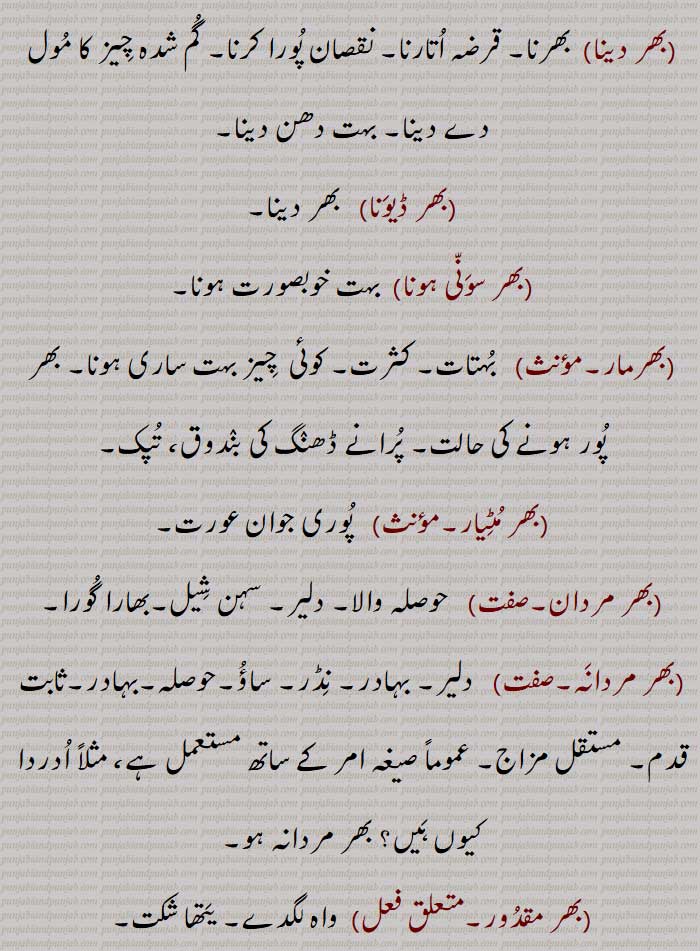 (بھر دینا) بھرنا۔ قرضہ اُتارنا۔ نقصان پُورا کرنا۔ گُم شدہ چِیز کا مُول
دے دینا۔ بہت دھن دینا۔
(بھر ڈیوَنا) بھر دینا۔
(بھر سوَنّی ہونا) بہت خوبصورت ہونا۔
(بھرمار۔مؤنث) بُہتات۔ کثرت۔ کوئی چِیز بہت ساری ہونا۔ بھر
پُور ہونے کی حالت۔ پُرانے ڈھنگ کی بندوق، تُپک۔
(بھر مُٹِیار۔مؤنث) پُوری جوان عورت۔
(بھر مردان۔صفت) حوصلہ والا۔ دلیر۔ سہن شِیل۔بھارا گورا۔
(بھر مردانَہ۔صفت) دلیر۔ بہادر۔ نِڈر۔ ساؤُ۔حوصلہ۔بہادر۔ثابت
قدم۔ مستقل مزاج۔ عموماً صیغہ امر کے ساتھ مستعمل ہے، مثلاً اُدردا
کیوں ہَیں؟ بھر مردانہ ہو۔
(بھر مقدُور۔متعلق فعل) واہ لگدے۔ یَتھا شکت۔